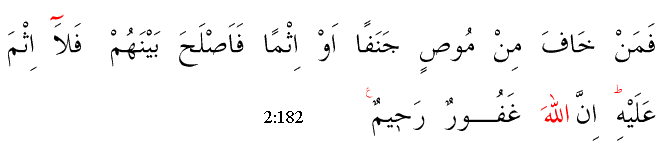 فَمَنْ خَافَ مِنْ مُوصٍ جَنَفًا اَوْ اِثْمًا فَاَصْلَحَ بَيْنَهُمْ فَلَٓا اِثْمَ
عَلَيْهِ ؕ اِنَّ اللّٰهَ غَفُورٌ رَحٖيمٌ ࣖ 2:182